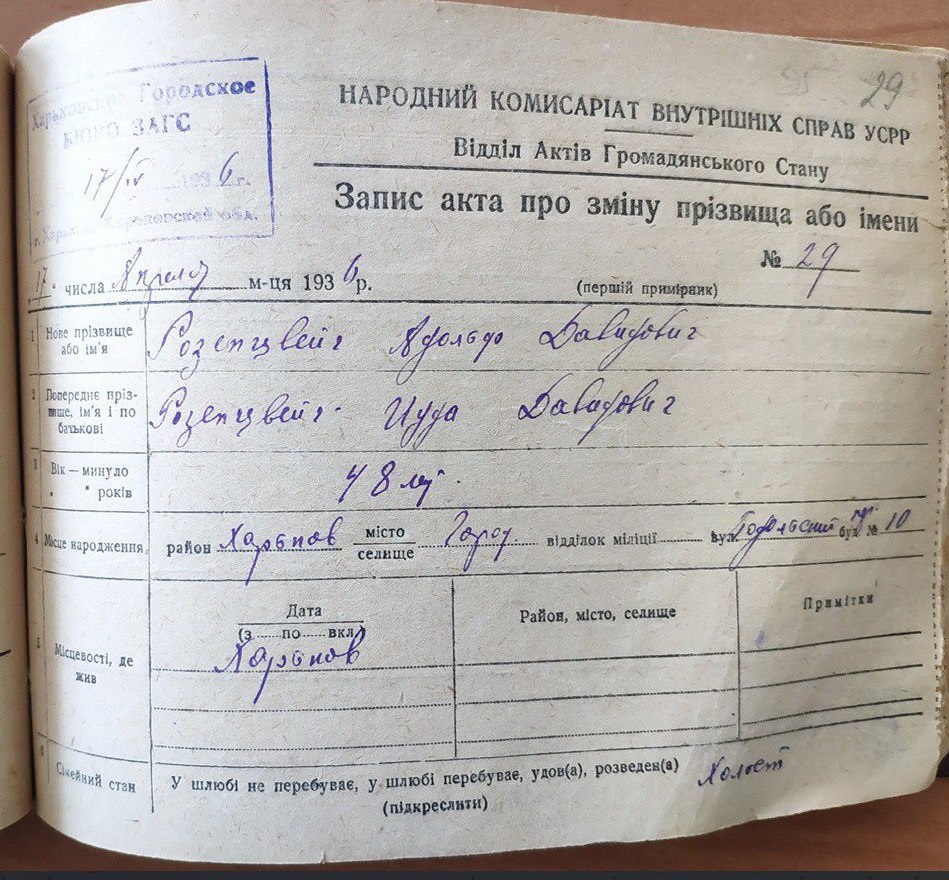 29
Харьковское Городское
БЮРО ЗАГС
17/IV 1936 г.
г. Харьков Харьковской обл.
НАРОДНИЙ КОМИСАРІАТ ВНУТРІШНІХ СПРАВ УСРР
Відділ Актів Громадянського Стану
Запис акта про зміну прізвища або імени
№ 29
17 числа Апреля м-ця 1936 р. (першій примірник)
1 Нове прізвище або ім'я Розенцвейг Адольф Давидович
2 Попереднє прізвище, ім'я і по батькові Розенцвейг Иуда Давидович
3 Вік — минуло років 48 лет.
4 Місце народження район Харьков місто селище Город відділок міліції вул. буд № 10
5 Місцевості, де жив
Дата (з ... по ... вкл) Район, місто, селище Примітки
Харьков
6 Сімейний стан У шлюбі не перебуває, у шлюбі перебуває, удов(а), розведен(а) Холост
(підкреслити)